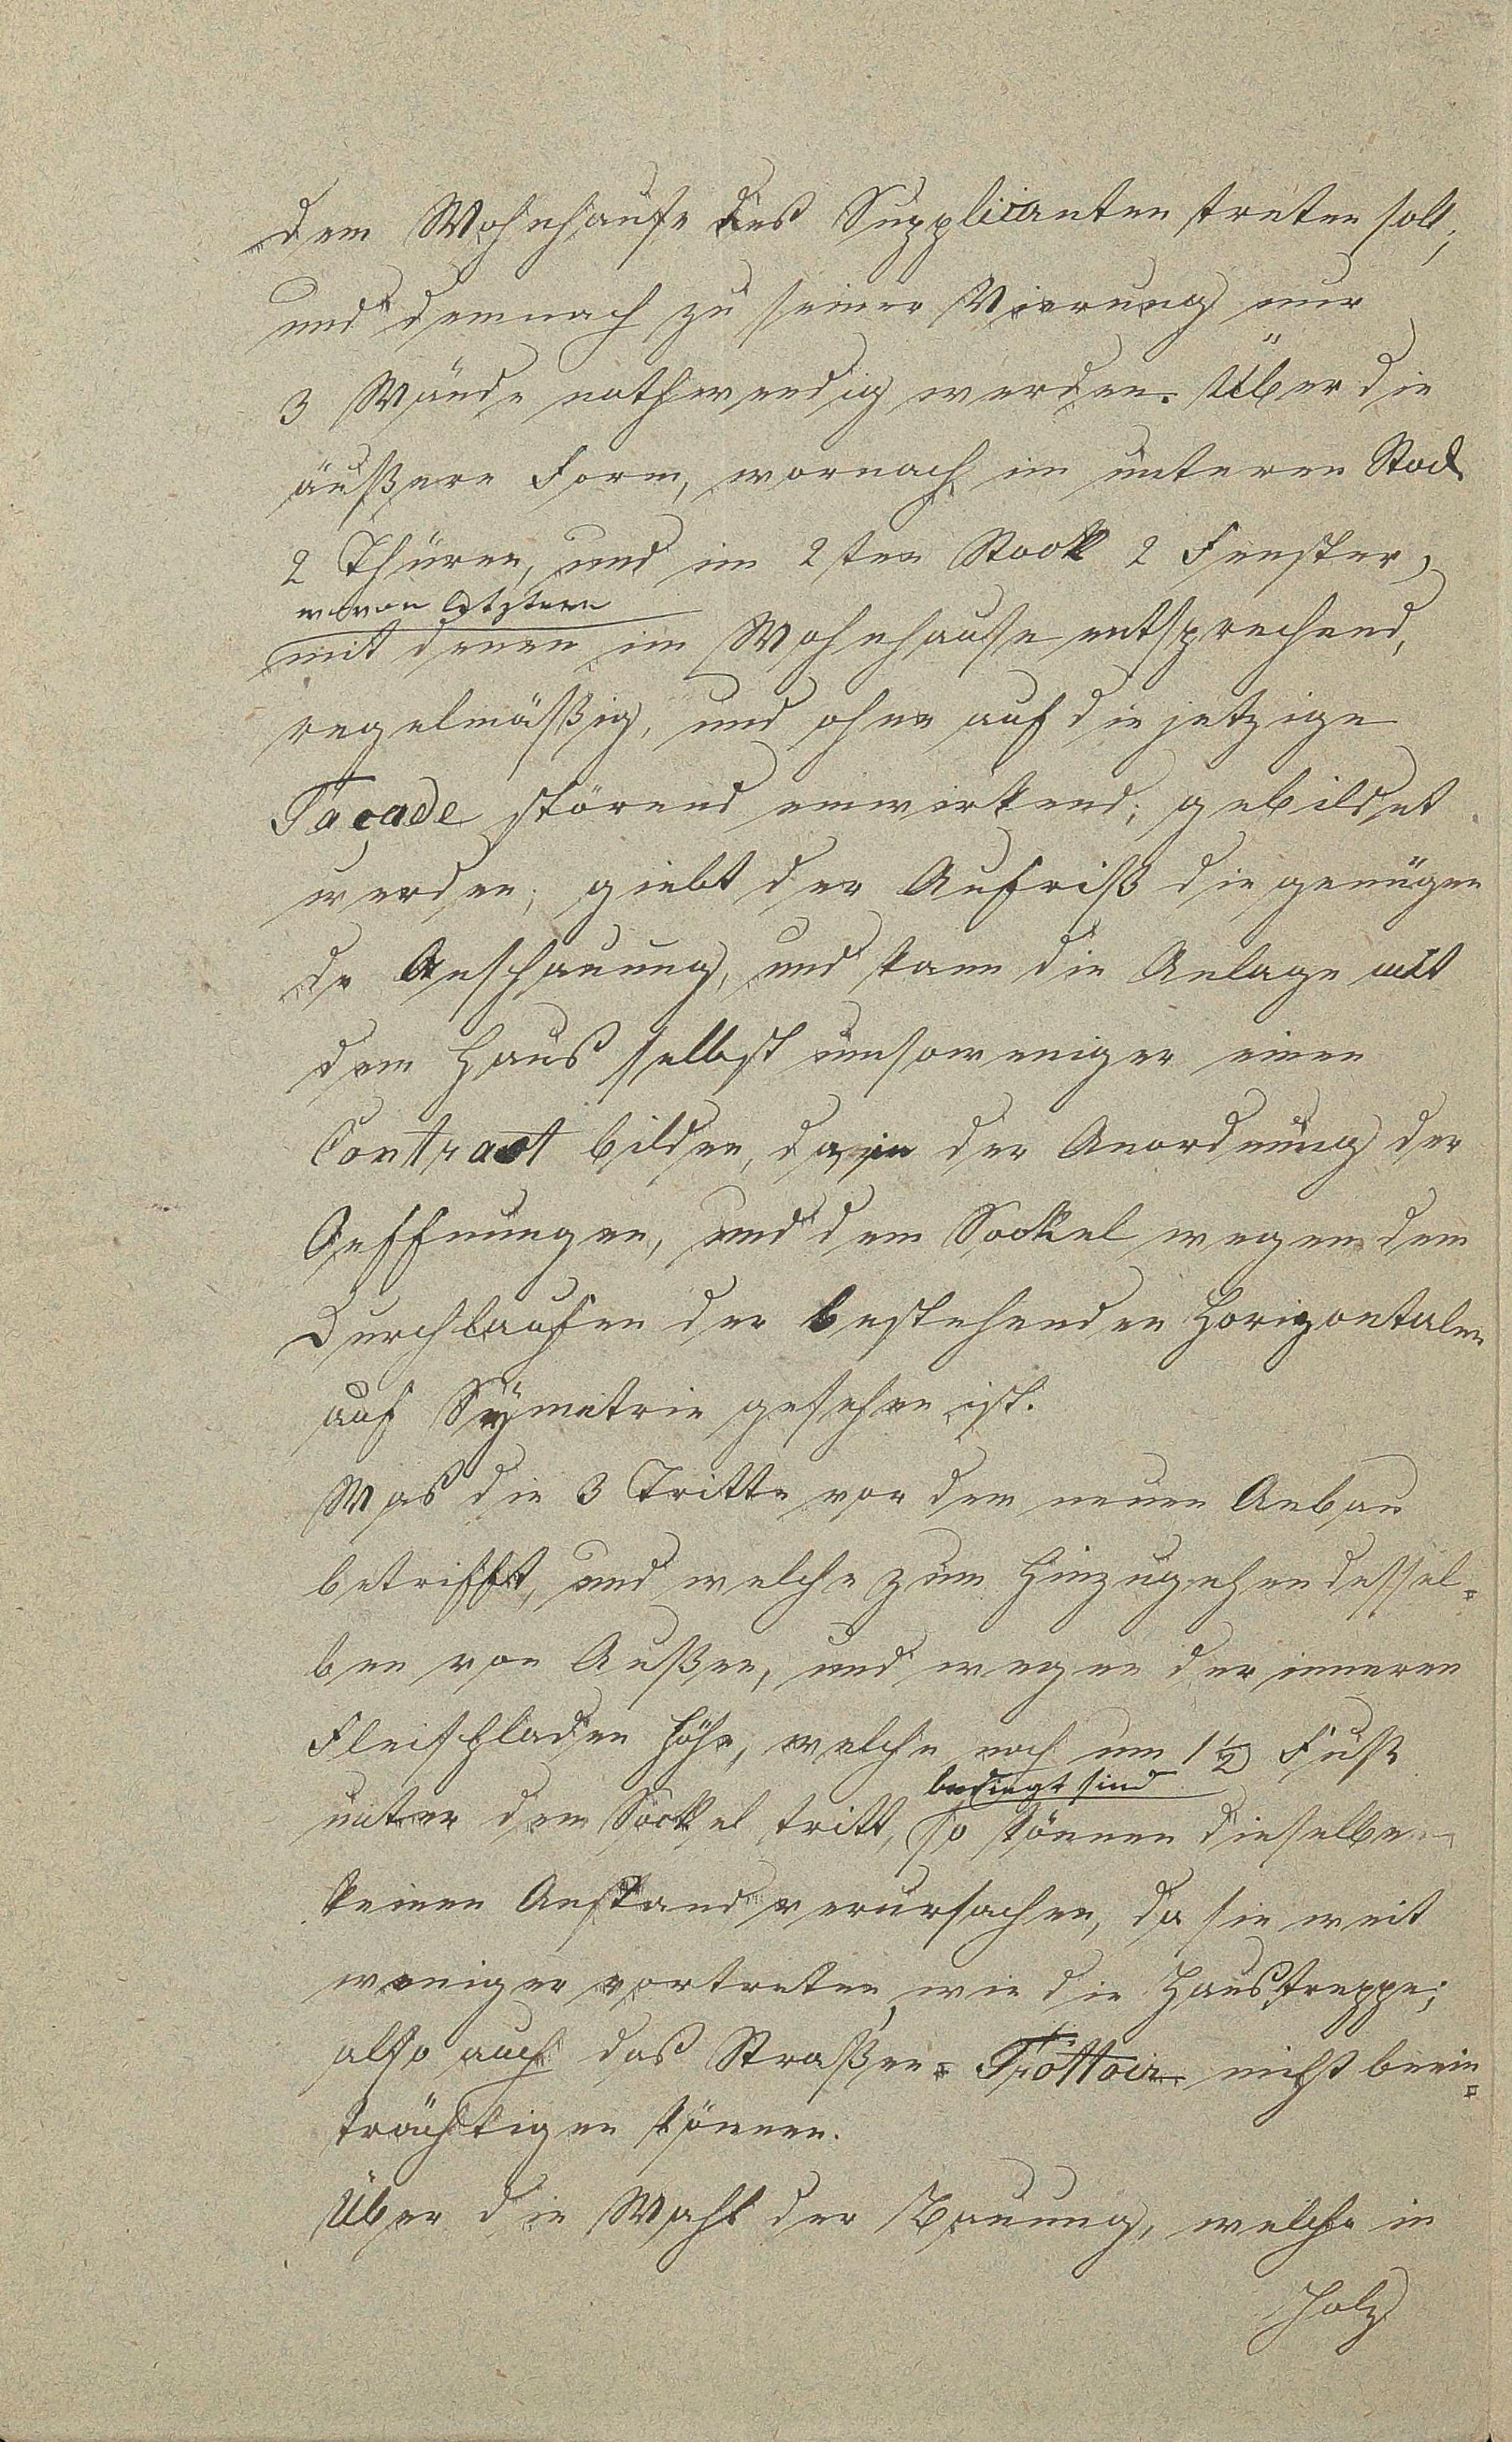 dem Wohnhause des Supplicanten treten soll,
und demnach zu seiner Vierung nur
3 Wände nothwendig werden. Über die
äußere Form, wornach im unteren Stock
2 Thüren, und im 2ten Stock 2 Fenster,
wovon letztere
mit denen im Wohnhause entsprechend,
regelmäßig, und ohne auf die jetzige
Façade störend einwirkend; gebildet
werden; giebt der Aufriß die genügen
de Anschauung, und kann die Anlage mit
dem Hauß selbst umsoweniger einen
Contract bilden, da in der Anordnung der
Oeffnungen, und dem Sockel wegen dem
Durchlaufen der bestehenden Horizontalen
auf Sÿmetrie gesehen ist.
Was die 3 Tritte vor dem neuen Anbau
betrifft, und welche zum Hinzugehen dessel-
ben von Außen, und wegen der inneren
Fleischladen Höhe, welche noch um 1½ Fuß
bedingt sind
unter dem Sockel tritt, so können dieselben
keinen Anstand verursachen, da sie weit
weniger vortreten, wie die Haustreppe;
also auch das Straßen-Trottoir nicht beein-
trächtigen können.
Über die Wahl der Bauung, welche in
Holz